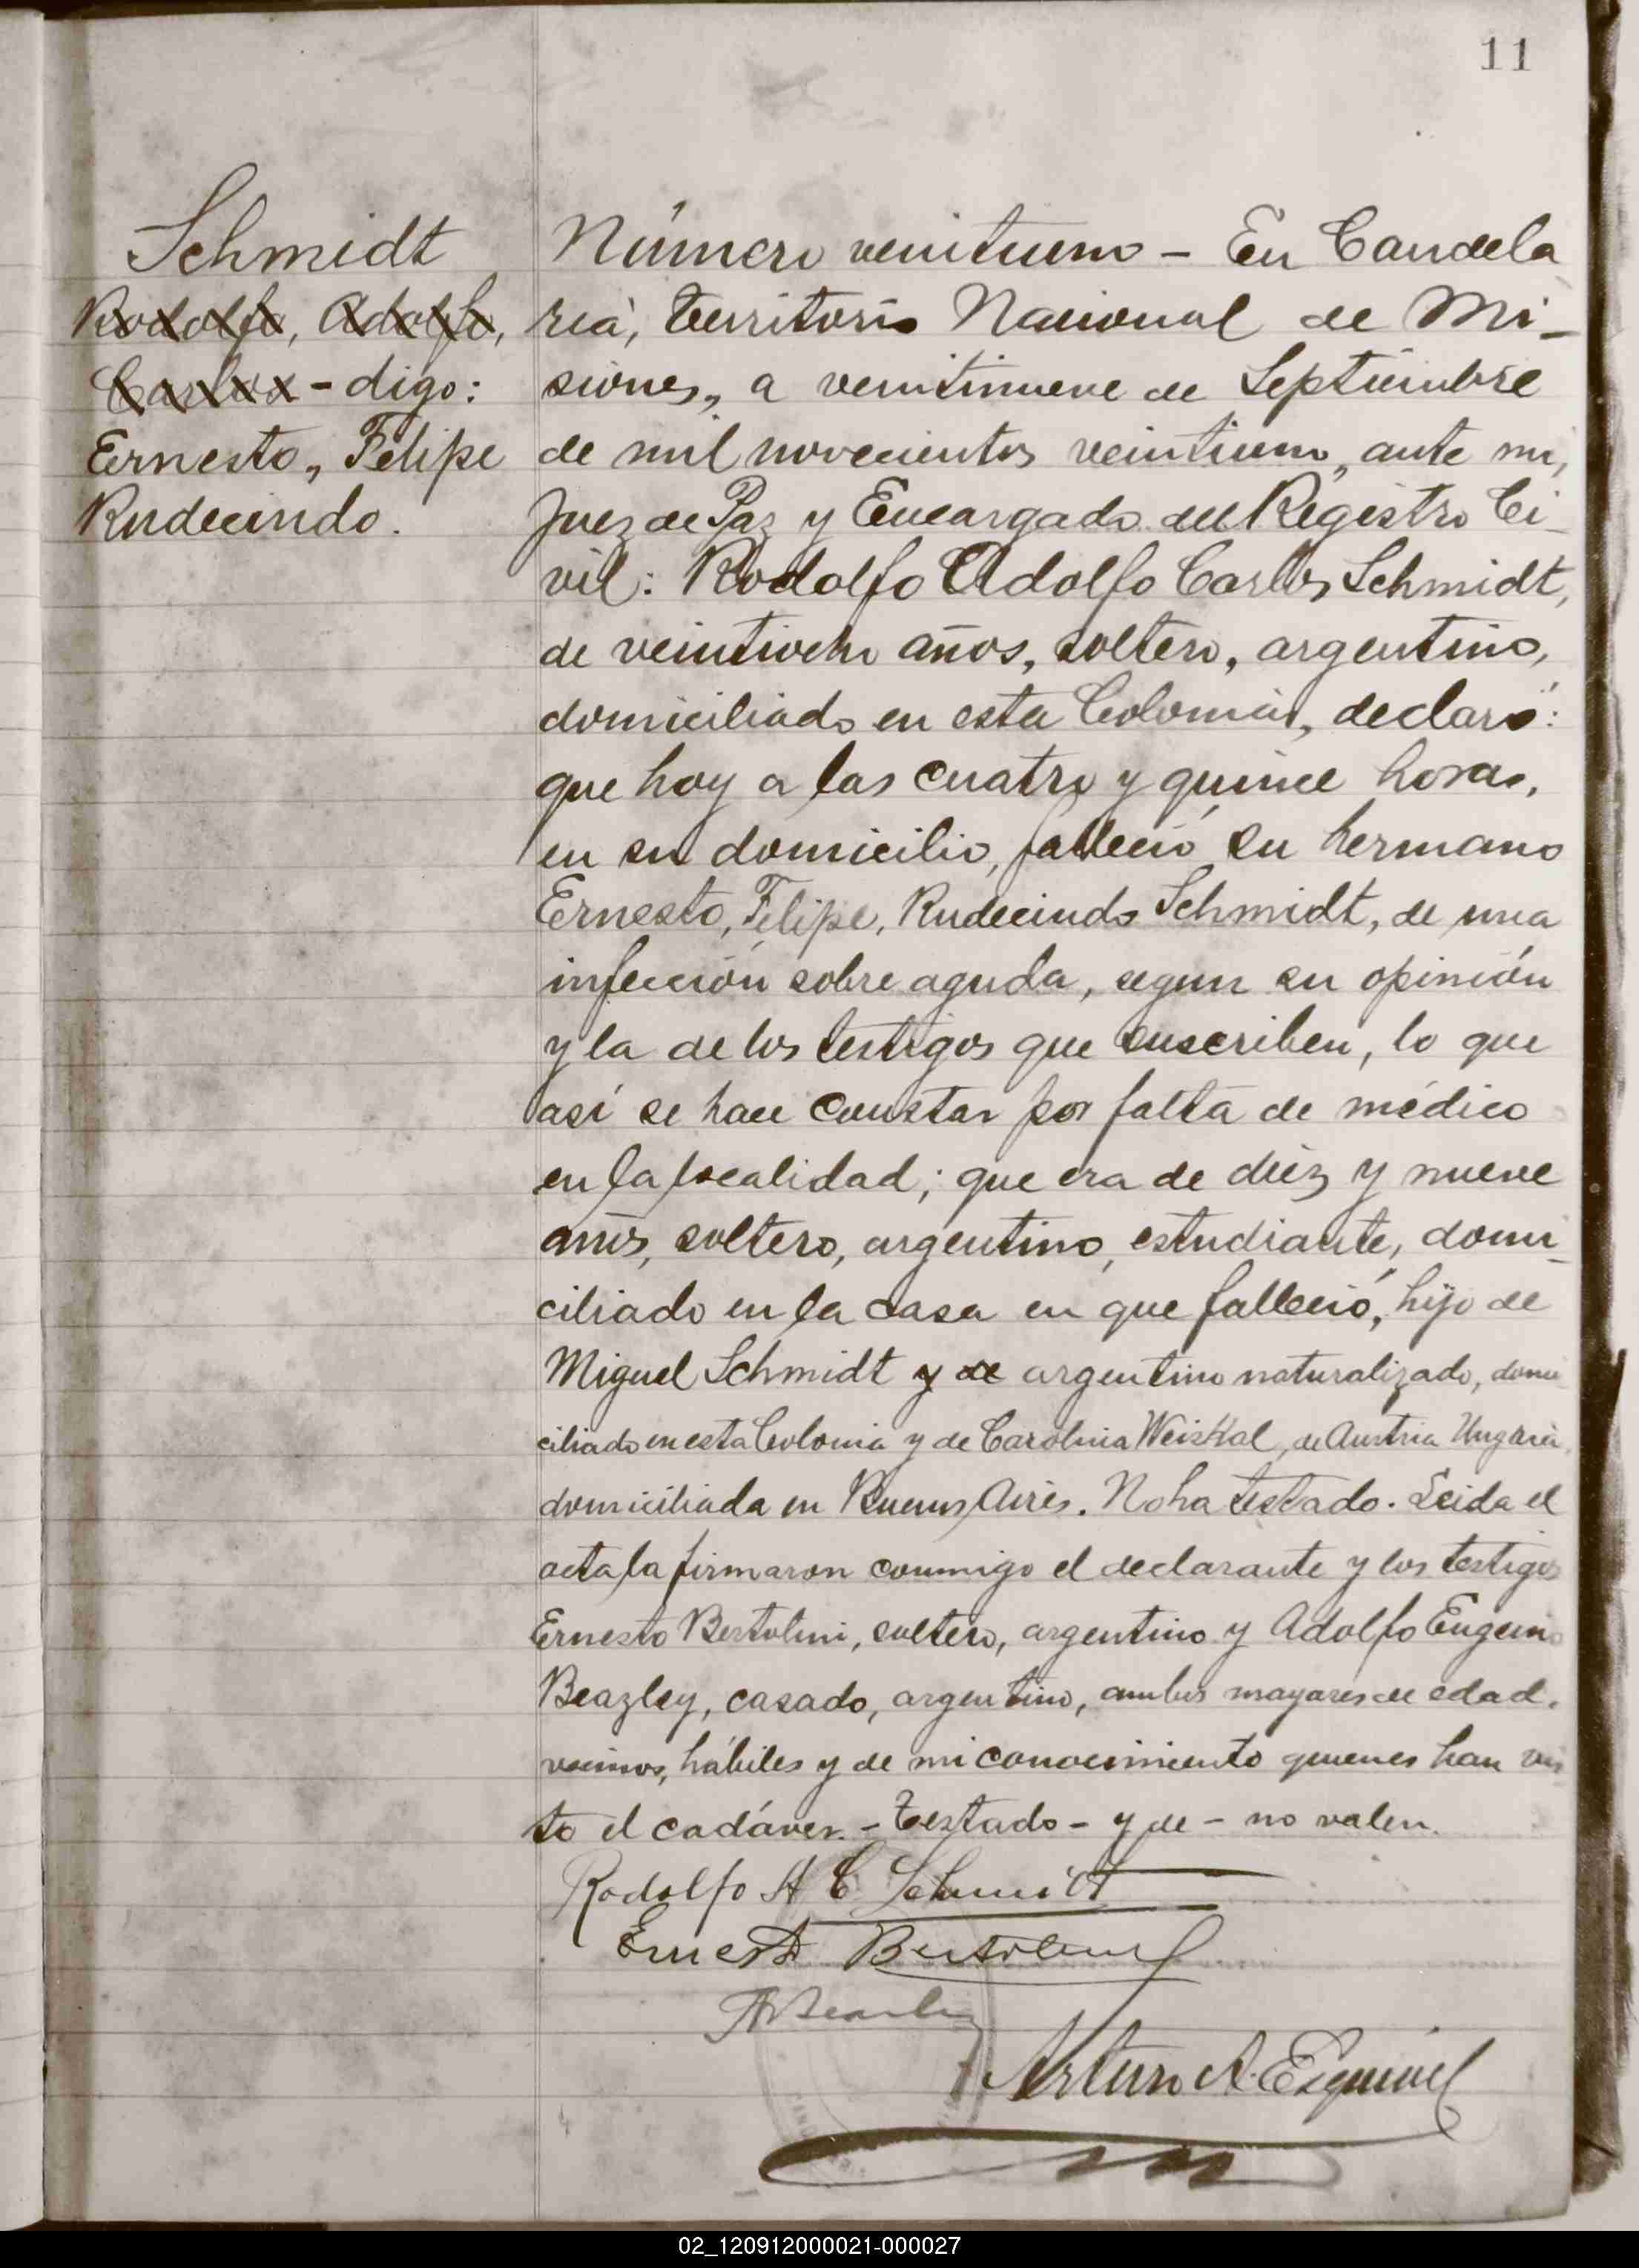 11
Schmidt
Rodolfo, Adolfo,
Carlos - digo:
Ernesto, Felipe
Rudecindo.
Número veintiuno - En Candela
ria, Territorio Nacional de Mi-
siones, a veintinueve de Septiembre
de mil novecientos veintiuno, ante mi,
Juez de Paz y Encargado del Registro Ci-
vil: Rodolfo Adolfo Carlos Schmidt,
de veintiocho años, soltero, argentino,
domiciliado en esta Colonia, declaró:
que hoy a las cuatro y quince horas,
en su domicilio, falleció su hermano
Ernesto, Felipe, Rudecindo Schmidt, de una
infección sobre aguda, segun su opinión
y la de los testigos que suscriben, lo que
así se hace constar por falta de médico
en la localidad; que era de diez y nueve
años, soltero, argentino, estudiante, domi-
ciliado en la casa en que falleció, hijo de
Miguel Schmidt y de argentino naturalizado, domi
ciliado en esta Colonia y de Carolina Weiskal, de Austria Ungria,
domiciliada en Buenos Aires. No ha testado. Leida el
acta la firmaron conmigo el declarante y los testigos
Ernesto Bertolini, soltero, argentino y Adolfo Eugenio
Beazley, casado, argentino, ambos mayores de edad,
vecinos, hábiles y de mi conocimiento quienes han vis
to el cadáver. - Testado - y de - no valen.
Rodolfo A C Schmidt
Ernesto Bertolini
A Beazley
Arturo A. Esquivel
02_120912000021-000027